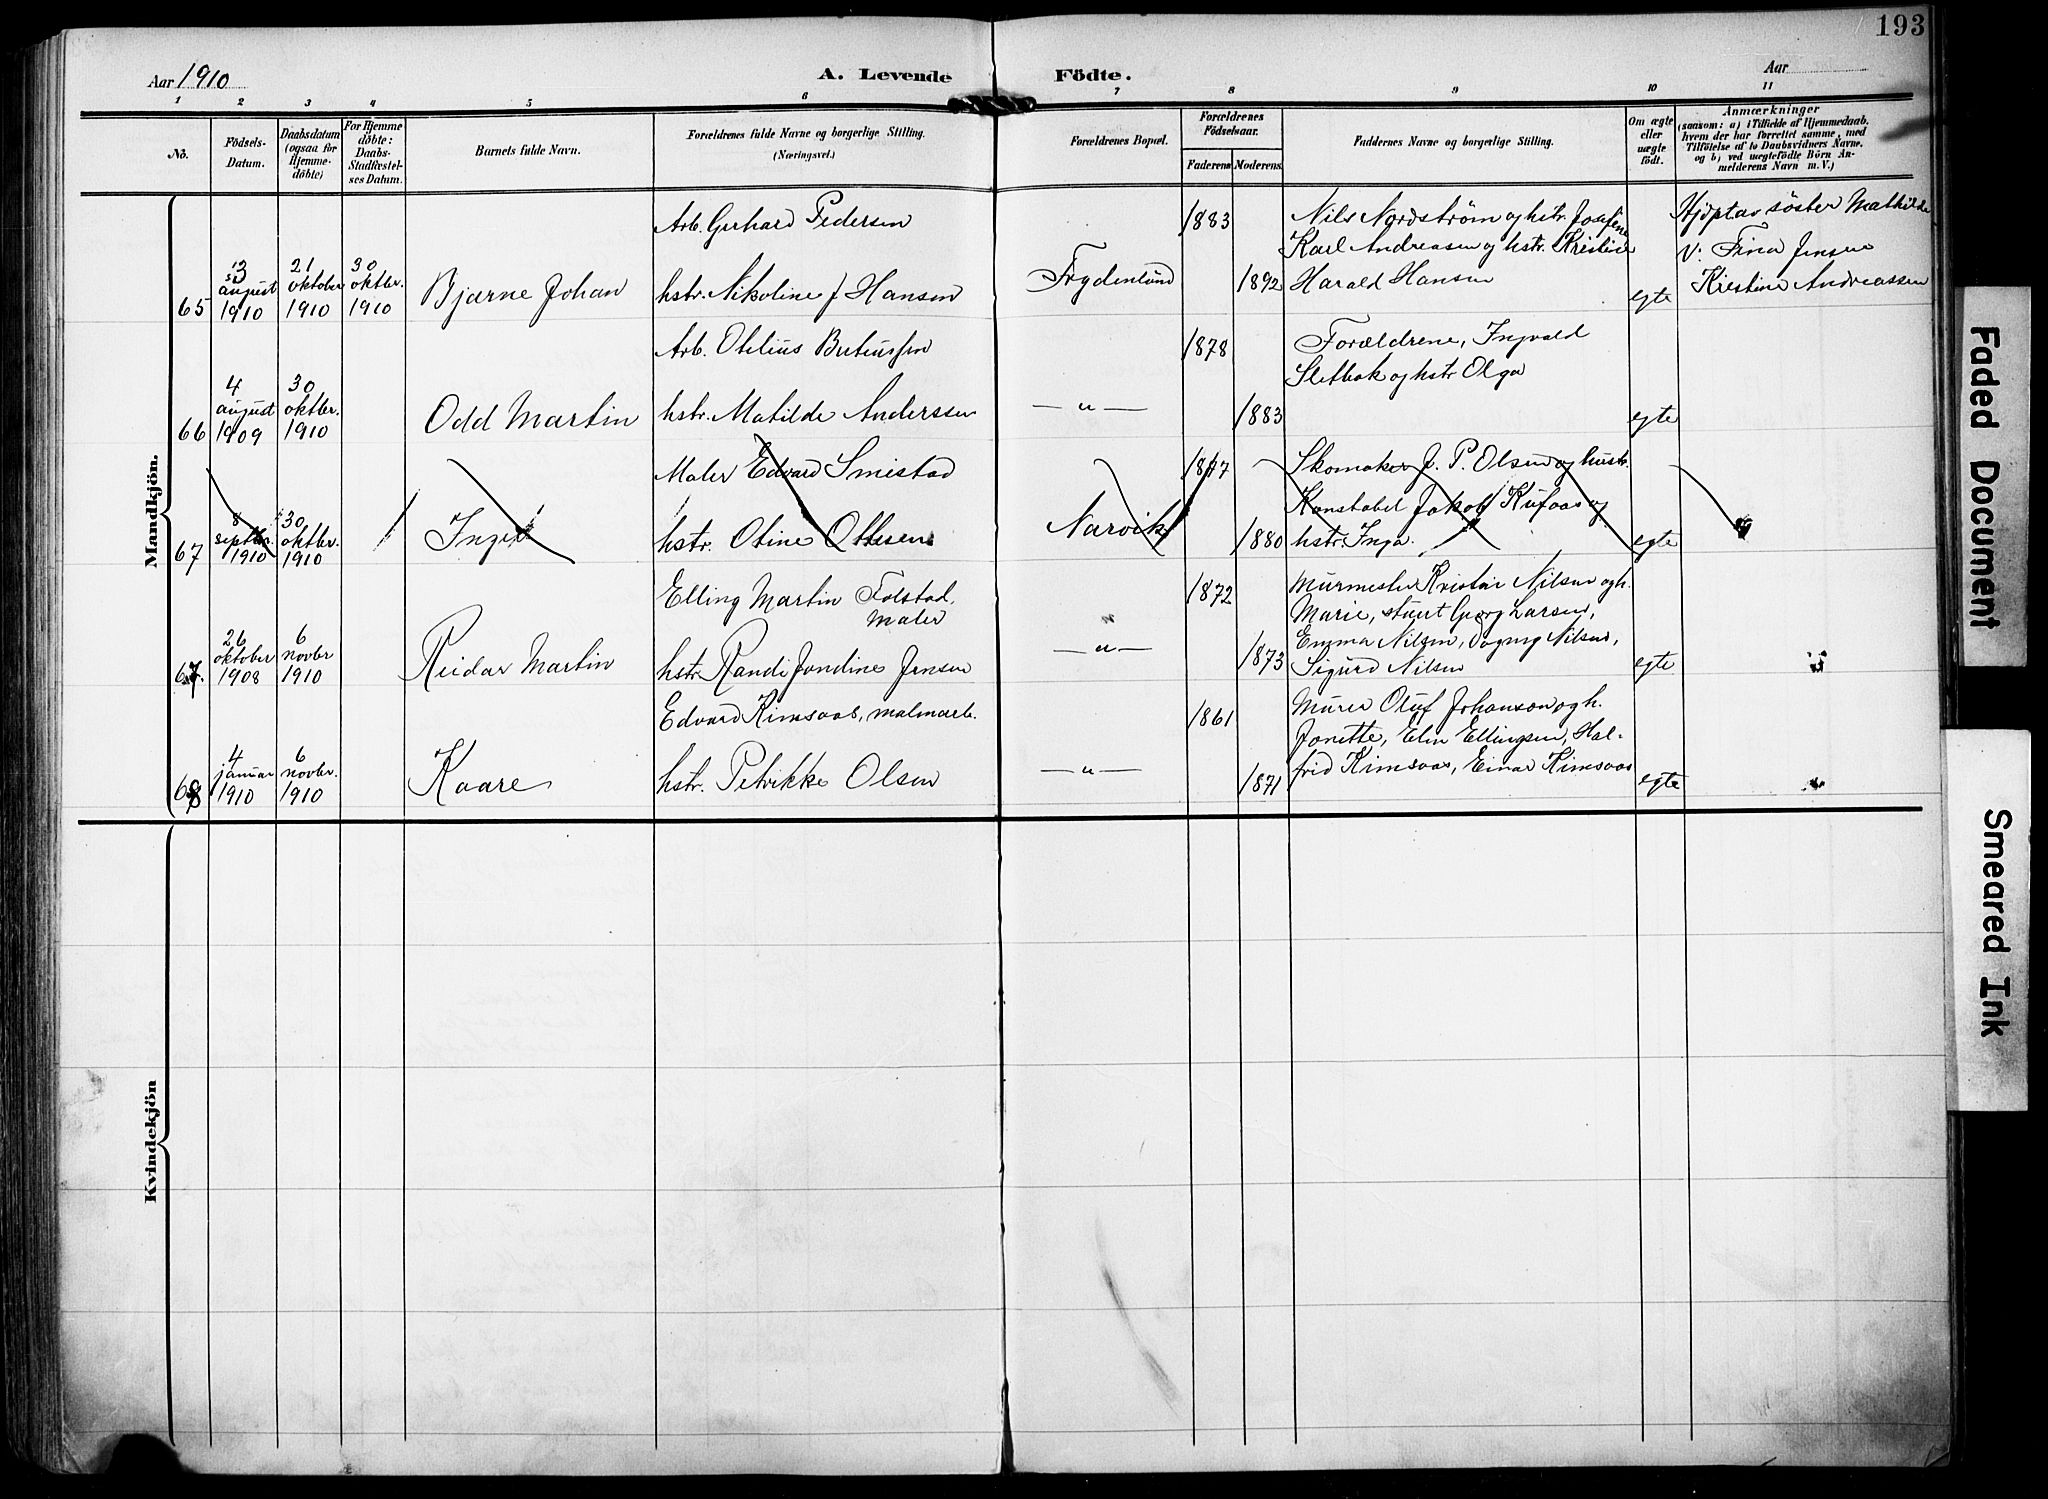 193
Aar 1910
A. Levende Födte.
Aar
1 2 3 4 5 6 7 8 9 10 11
No.
Födsels-Datum.
Daabsdatum (ogsaa for Hjemme-döbte)
For Hjemme döbte: Daabs-Stadfæstel-ses Datum.
Barnets fulde Navn.
Forældrenes fulde Navne og borgerlige Stilling. (Næringsvei.)
Forældrenes Bopæl.
Forældrenes Födselsaar.
Faderens
Moderens
Faddernes Navne og borgerlige Stilling.
Om ægte eller uægte födt.
Anmærkninger
(saasom: a) i Tilfælde af Hjemmedaab.
hvem der har forrettet samme, med
Tilföielse af to Daabsvidners Navne.
og b) ved uægtefödte Börn An-
melderens Navn m. V.)
Mandkjön.
65
13 august 1910
21 oktober 1910
30 oktbr. 1910
Bjarne Johan
Arb. Gerhard Pedersen
hstr. Nikoline f Hansen
Frydenlund
1883
1892
Nils Nordstrøm og hstr. Josefine
Karl Andreasen og hstr. Kristine
Harald Hansen
egte
søster Mathilde
V: Trina Jensen
Kristine Andreassen
66
4 august 1909
30 oktbr. 1910
Odd Martin
Arb. Otelius
hstr. Matilde Anderssen
— " —
1878
1883
Forældrene, Ingvald
Sletbak og hstr Olga
egte
67
8 septbr. 1910
30 oktbr. 1910
Maler Edvard Smistad
hstr. Otine Ottesen
Narvik
1880
Skomaker J. P. Olsen og hustr.
Konstabel Jakob Kufaas og
hstr. Inga.
egte
67.
26 oktober 1908
6 novbr 1910
Reidar Martin
Elling Martin Folstad,
Maler
hstr. Randi Jondine Jensen
— " —
1872
1873
Murmester Kristian Nilsen og h.
Marie, stuert Georg Larsen,
Emma Nilsen, Dagny Nilsen,
Sigurd Nilsen
egte
68
4 januar 1910
6 novbr. 1910
Kaare
Edvard Kimsaas, malmarb.
hstr. Petrikke Olsen
— " —
1861
1871
Murer Oluf Johanson og h.
Jonette, Elen Ellingsen, Hal-
frid Kimsaas, Einar Kimsaas
egte
Kvindekjön
Faded Document
Smeared Ink